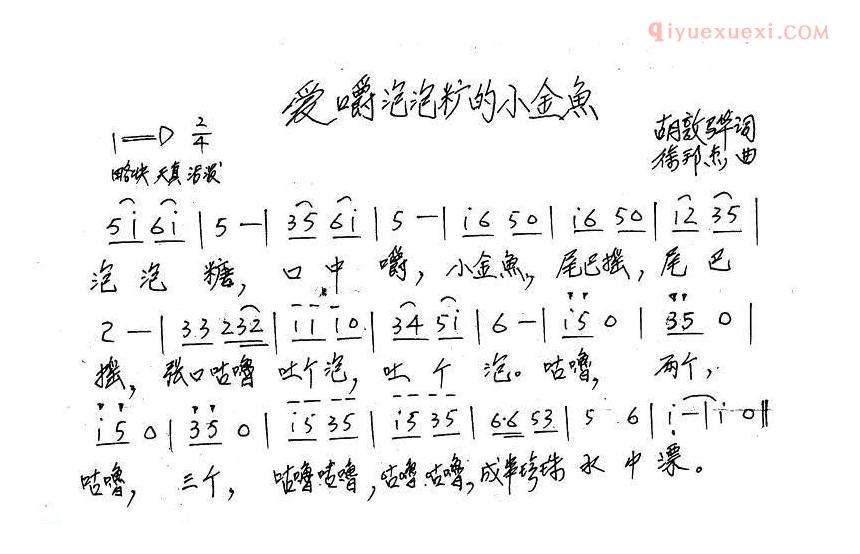 qiyuexuexi.com
爱嚼泡泡糖的小金魚
1=D 2/4
胡敦骅词
略快 天真 活泼
徐邦杰曲
5i 6i | 5 — | 35 6i | 5 — | i6 50 | i6 50 | i2 35 |
泡泡糖，口中嚼，小金魚，尾巴摇，尾巴
2 — | 33 232 | 11 10 | 34 5i | 6 — | i5 0 | 35 0 |
摇，张口咕噜吐个泡，吐个泡。咕噜，两个，
i5 0 | 35 0 | i5 35 | i5 35 | 6·6 53 | 5 6 | i — | i 0 ‖
咕噜，三个，咕噜咕噜，咕噜咕噜，成串珍珠水中漂。